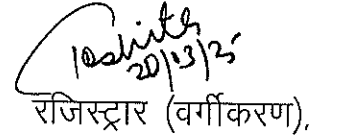 20/03/25
रजिस्ट्रार (वर्गीकरण),